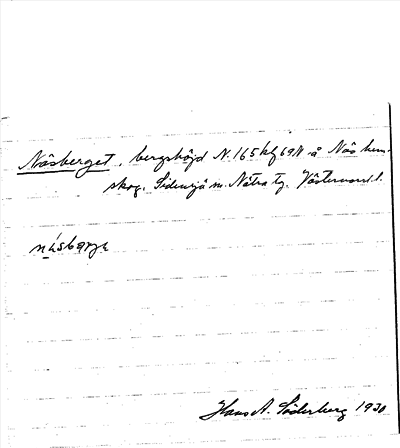 Näsberget, bergshöjd N.165 kbf 69N å Näs hem-
skog. Sidensjö sn. Nätra tg. Västernorrl. l.
näsbærjə
Hans A. Söderberg 1930